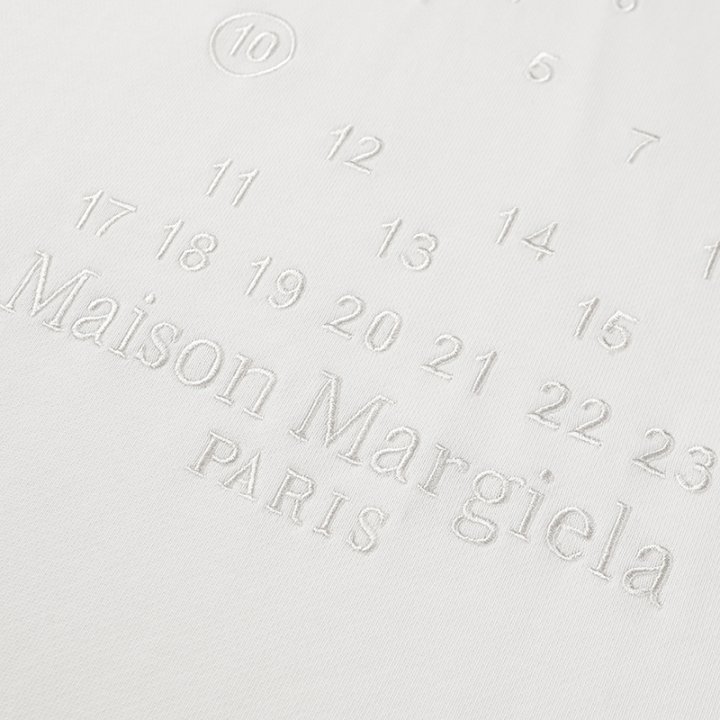 5
7
10
12
11
13 14 15
17 18 19 20 21 22 23
Maison Margiela
PARIS